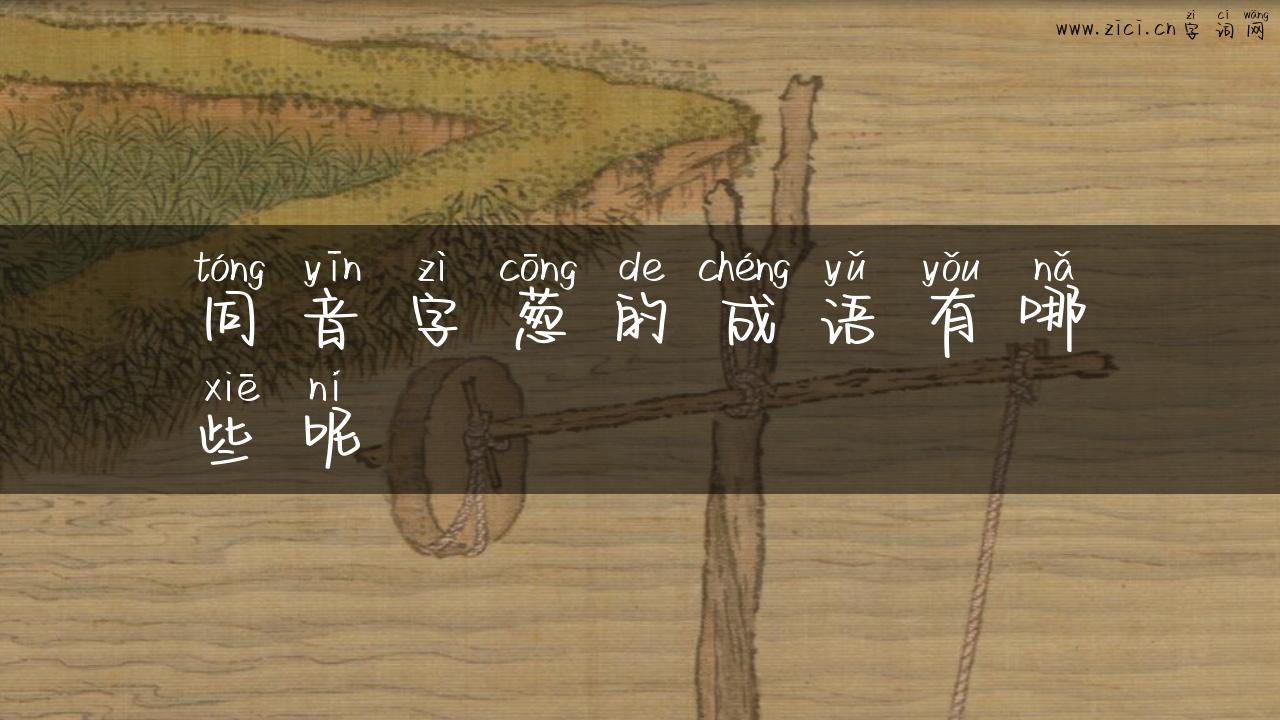 zì cí wǎng
www.zici.cn 字 词 网
tóng yīn zì cōng de chéng yǔ yǒu nǎ
同 音 字 葱 的 成 语 有 哪
xiē ní
些 呢